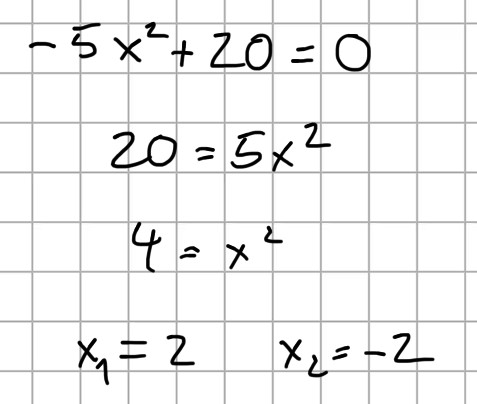 -5x²+20=0
20=5x²
4=x²
x₁=2 x₂=-2